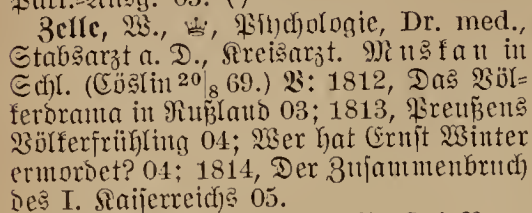 Zelle, W., ♕, Psychologie, Dr. med.,
Stabsarzt a. D., Kreisarzt. Muskau in
Schl. (Cöslin 20|8 69.) V: 1812, Das Völ=
kerdrama in Rußland 03; 1813, Preußens
Völkerfrühling 04; Wer hat Ernst Winter
ermordet? 04; 1814, Der Zusammenbruch
des I. Kaiserreichs 05.